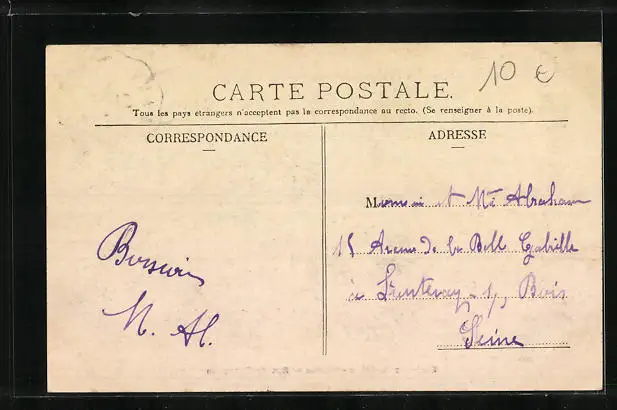 10 €
CARTE POSTALE.
Tous les pays étrangers n'acceptent pas la correspondance au recto. (Se renseigner à la poste).
CORRESPONDANCE
ADRESSE
Monsieur et Me Abraham
15 Avenue de la Bell Gabrielle
à Fontenay s/s Bois
Seine
M. Al.